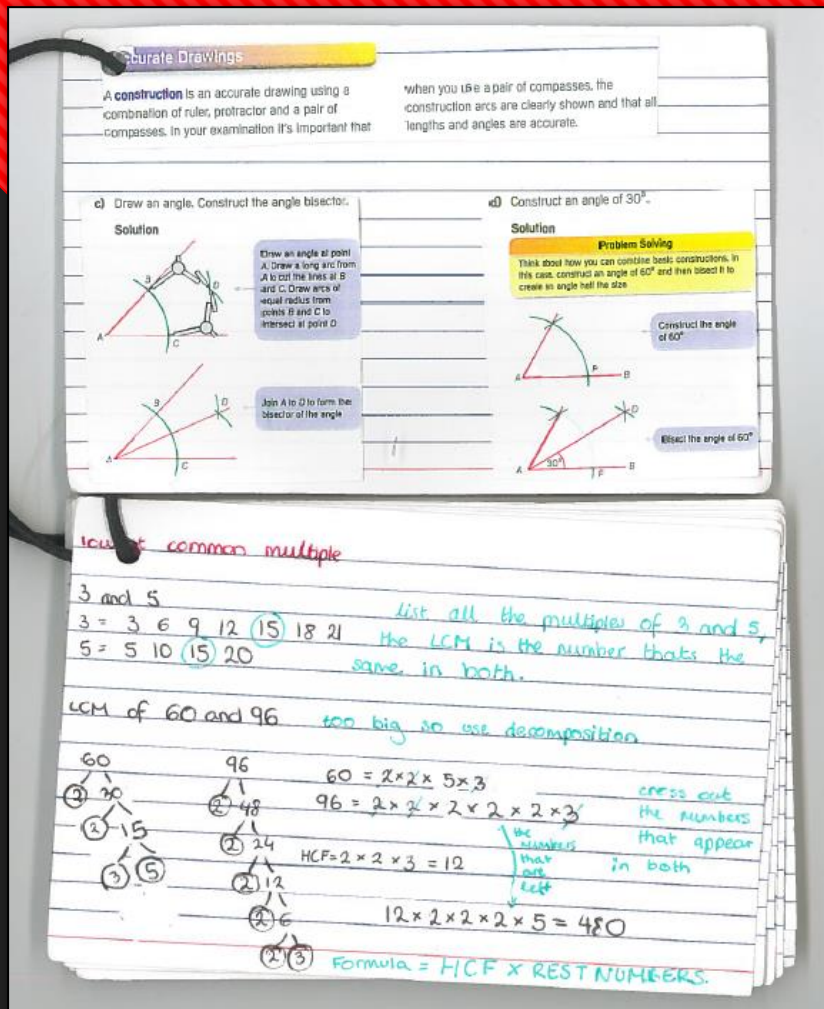 ccurate Drawings
A construction is an accurate drawing using a
combnation of ruler, protractor and a pair of
compasses. In your examination it's important that
when you use a pair of compasses, the
construction arcs are clearly shown and that all
lengths and angles are accurate.
c) Draw an angle. Construct the angle bisector.
Solution
Draw an angle at point
A. Draw a long arc from
A to cut the lines at B
and C. Draw arcs of
equal radius from
points B and C to
intersect at point D
B
D
A
C
Join A to D to form the
bisector of the angle
B
D
A
C
d) Construct an angle of 30°.
Solution
Problem Solving
Think about how you can combine basic constructions. In
this case, construct an angle of 60° and then bisect it to
create an angle half the size
Construct the angle
of 60°
A
P
B
Bisect the angle of 60°
D
A
30°
P
B
lowest common multiple
3 and 5
3 = 3 6 9 12 15 18 21
5 = 5 10 15 20
list all the multiples of 3 and 5,
the LCM is the number thats the
same in both.
LCM of 60 and 96 too big so use decomposition
60
2 30
2 15
3 5
96
2 48
2 24
2 12
2 6
2 3
60 = 2×2× 5×3
96 = 2×2×2×2×2×3
cross out
the numbers
that appear
in both
the
numbers
that
are
left
HCF=2×2×3=12
12×2×2×2×5=480
Formula = HCF × REST NUMBERS.